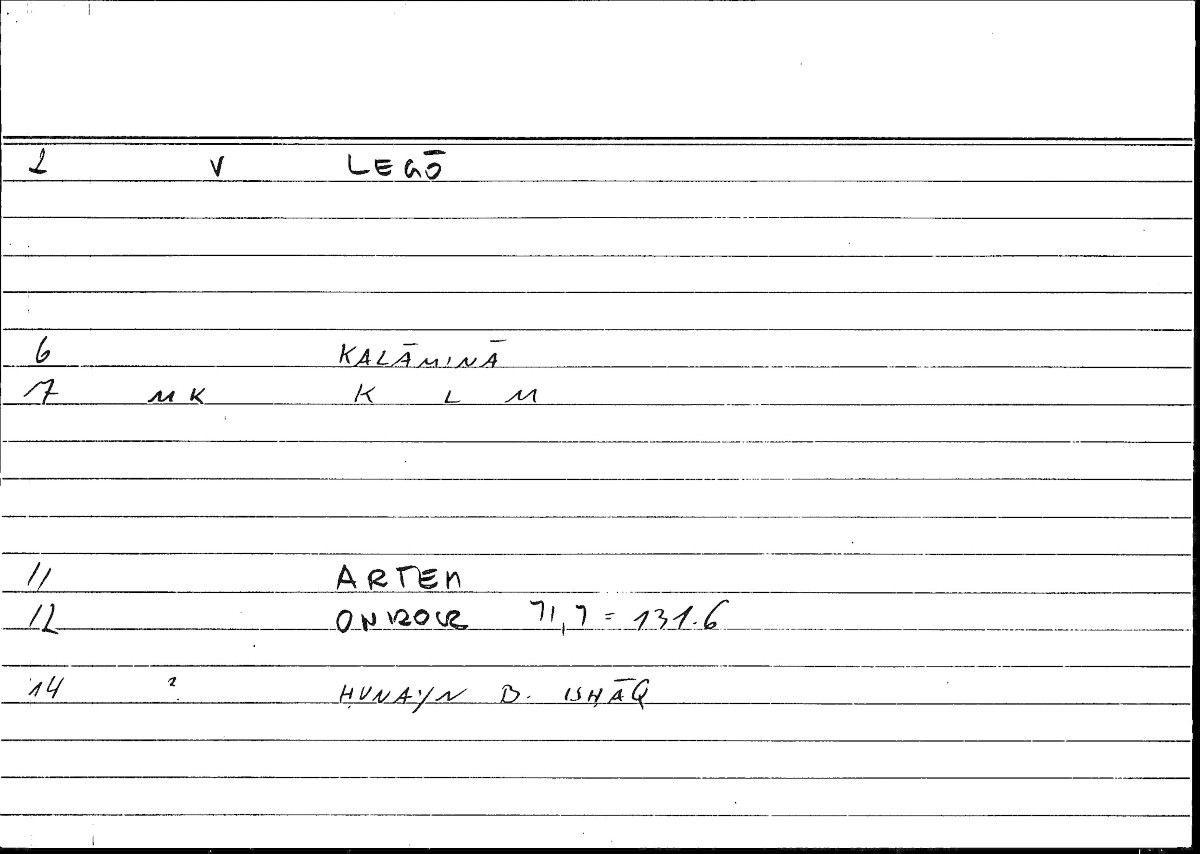 2 V LEGŌ
6 KALĀMINĀ
7 MK K L M
11 ARTEM
12 71,7 = 131.6
14 ? ḤUNAYN B. ISḤĀQ